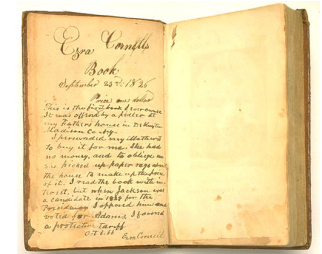 Ezra Cornell's
Book
September 23rd 1826
Price: one dollar
This is the first book I ever owned
It was offered by a pedler at
my Fathers house in DeRuyter
Madison Co. N.y.
I persuaded my Mother
to buy it for me. She had
no money, and to oblige me
she picked up paper rags about
the house to make up the price
of it. I read the book with in-
terest, but when Jackson was
a candidate in 1828 for the
Presidency I opposed him and
voted for Adams I favored
a protective tariff
Ezra Cornell